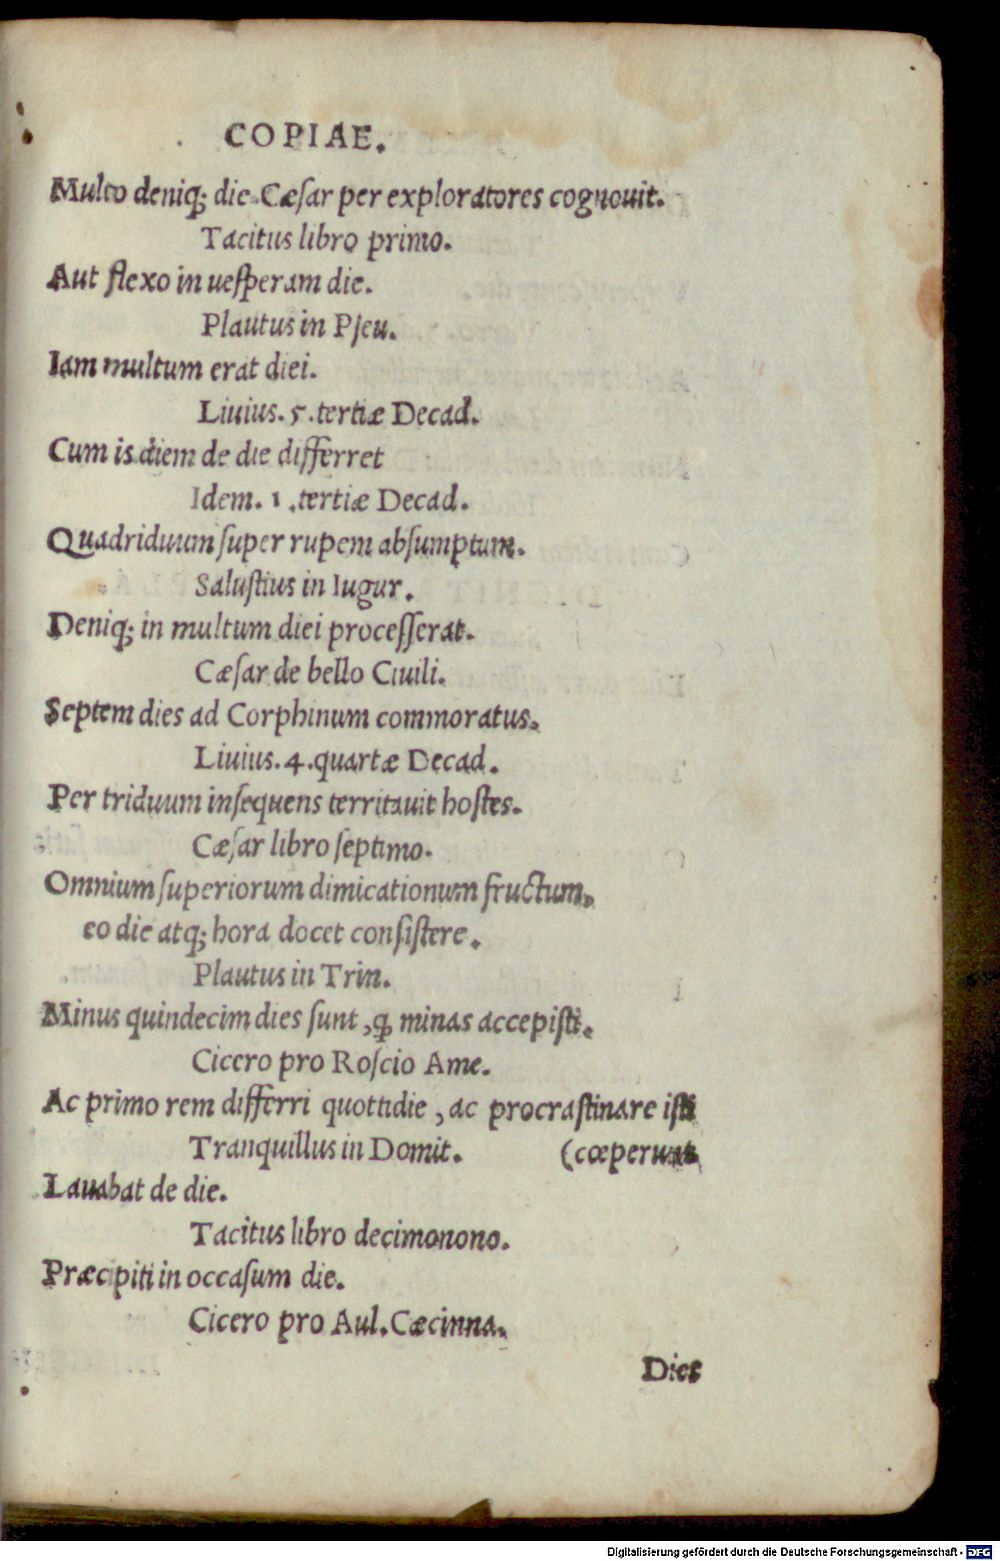 COPIAE.
Multo deniq; die Cæſar per exploratores cognouit.
Tacitus libro primo.
Aut flexo in ueſperam die.
Plautus in Pſeu.
Iam multum erat diei.
Liuius. 5. tertiæ Decad.
Cum is diem de die differret
Idem. 1. tertiæ Decad.
Quadriduum ſuper rupem abſumptum.
Saluſtius in Iugur.
Deniq; in multum diei proceſſerat.
Cæſar de bello Ciuili.
Septem dies ad Corphinum commoratus.
Liuius. 4. quartæ Decad.
Per triduum inſequens territauit hoſtes.
Cæſar libro ſeptimo.
Omnium ſuperiorum dimicationum fructum,
eo die atq; hora docet conſiſtere.
Plautus in Trin.
Minus quindecim dies ſunt, ꝙ minas accepiſti.
Cicero pro Roſcio Ame.
Ac primo rem differri quottidie, ac procraſtinare iſti
Tranquillus in Domit. (cœperunt
Lauabat de die.
Tacitus libro decimonono.
Præcipiti in occaſum die.
Cicero pro Aul. Cæcinna.
Dies
Digitalisierung gefördert durch die Deutsche Forschungsgemeinschaft - DFG